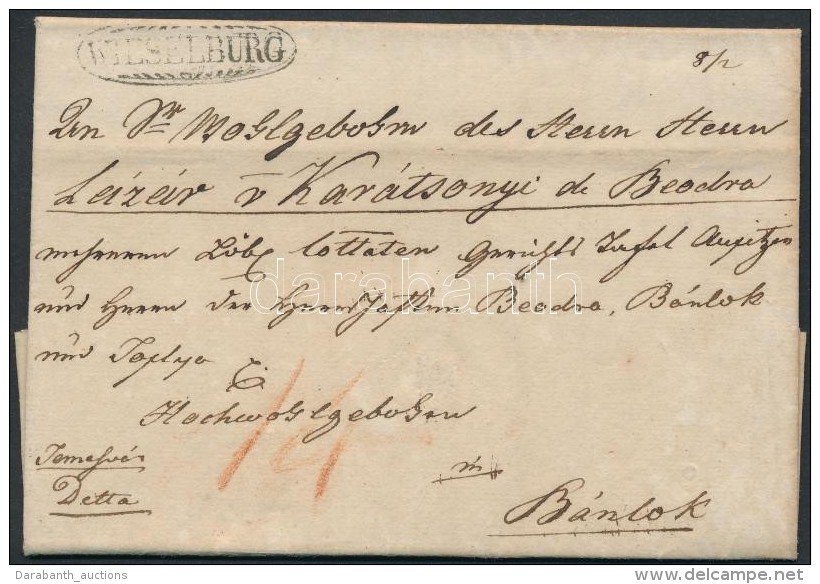 WIESELBURG
8/2
An Sr Wohlgebohrn des Herrn Herrn
Lázár v Karátsonyi de Beodra
mehreren Löbl Comitaten Gerichts Tafel Aupitzer
und Herrn der Herrschaften Beodra, Bánlok
und Toplya
Hochwohlgebohrn
darabanth
Temesvár
Detta
in
Bánlok
Darabanth_auctions
delcampe.net